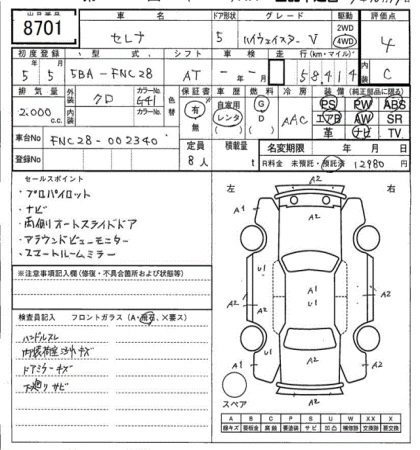 出品番号 車名 ドア形状 グレード 駆動 評価点
8701 セレナ 5 ハイウェイスター V 2WD 4WD 4
初度登録 型式 シフト 車検 走行(km・マイル) 内装
5年5月 5BA-FNC28 AT -年-月 58,414 C
排気量 外装 カラーNo. 色替 保証書 車歴 燃料 冷房 装備(純正部品に限る)
2,000 c.c. クロ G41 有 無 自家用 レンタ G D AAC PS PW ABS
エアB AW SR
革 ナビ TV
車台No FNC28-002340 定員 8人 積載量 t 名変期限 年 月 日
登録NO R料金 未預託・預託済 12980 円
セールスポイント
・プロパイロット
・ナビ
・両側オートスライドドア
・アラウンドビューモニター
・スマートルームミラー
※注意事項記入欄(修復・不具合箇所および状態等)
検査員記入 フロントガラス(A・飛石、×要ス)
ハンドルスレ
内装荷室
ドアミラーキズ
下廻りサビ
左 右
A1 A2 A1
A2
U1 A1
A2 U1 A2
U1
A1 A2 A1
A2
スペア
A B C P S U W X XX
線キズ 要板金 腐蝕 要塗装 サビ 凹凸 補修跡 要交換 交換済